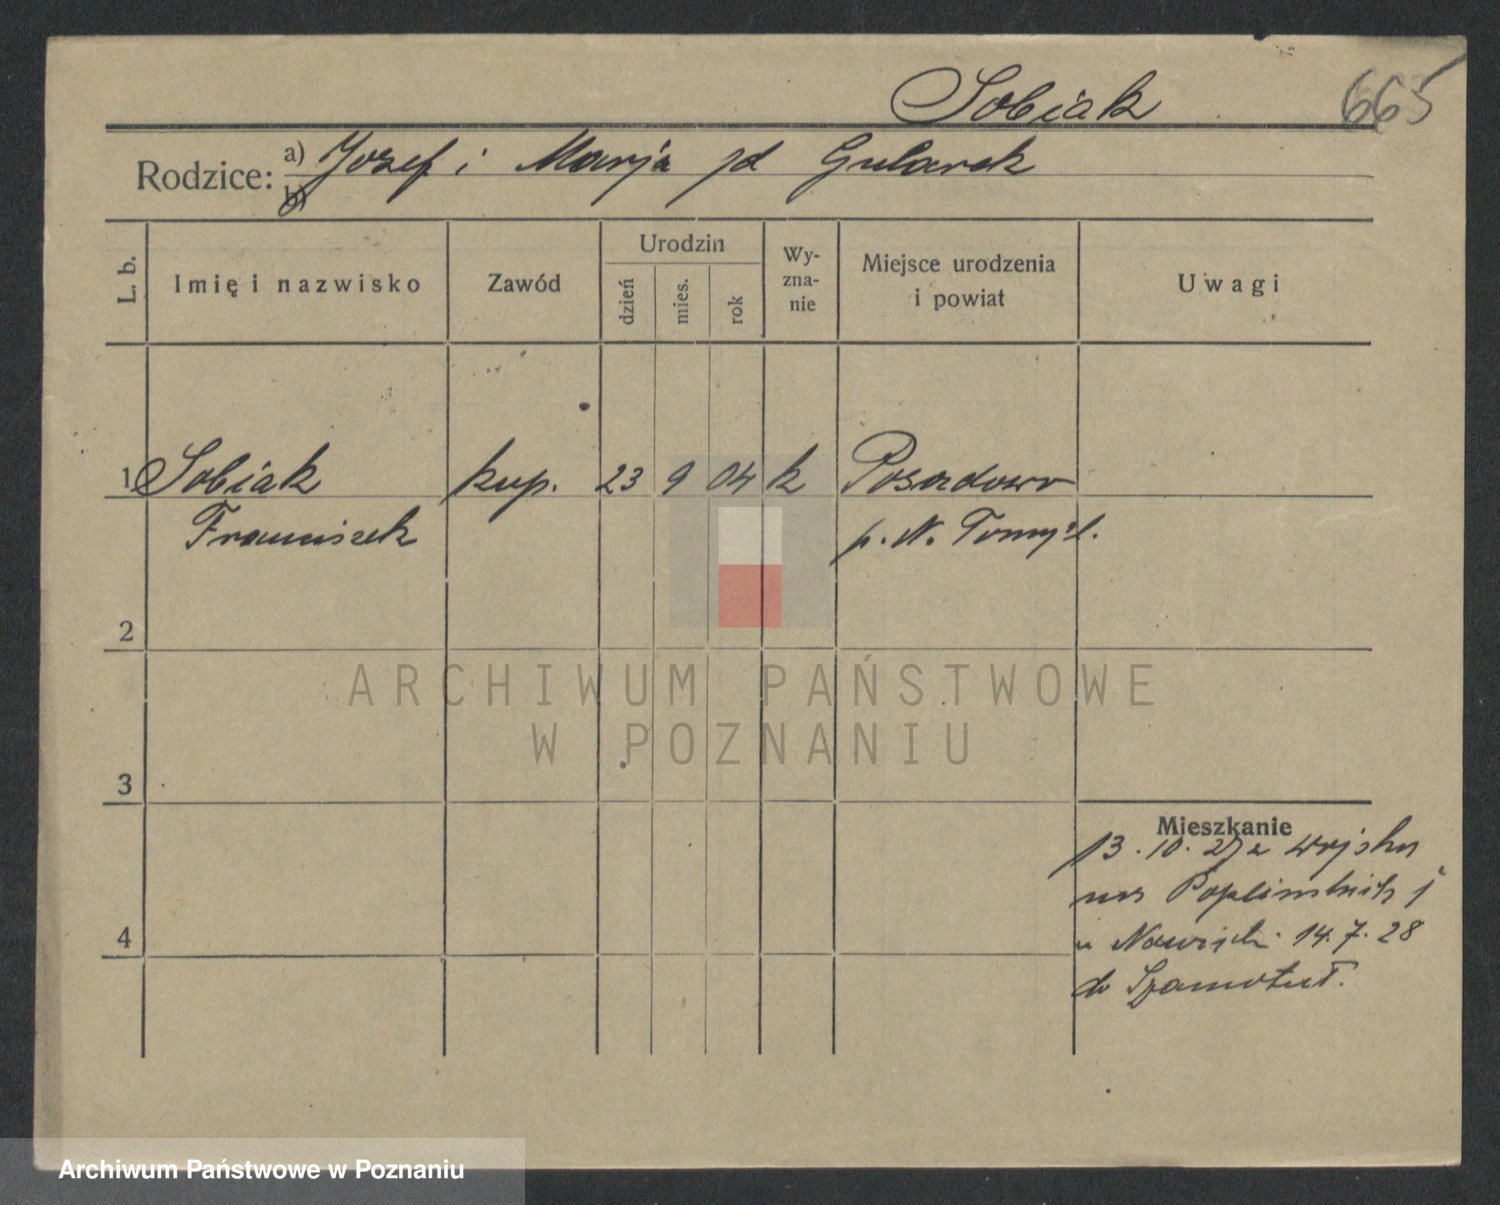 Sobiak 665
Rodzice: a) Jozef i Marja jd Gularek
b)
L. b.
Imię i nazwisko
Zawód
Urodzin
dzień
mies.
rok
Wy-
zna-
nie
Miejsce urodzenia
i powiat
Uwagi
1 Sobiak kup. 23 9 04 k Posadowo
Franciszek p. N. Tomyśl.
2
ARCHIWUM PAŃSTWOWE
W POZNANIU
3
Mieszkanie
13. 10. 27 z wojsku
4
14. 7. 28
do Szamotuł.
Archiwum Państwowe w Poznaniu